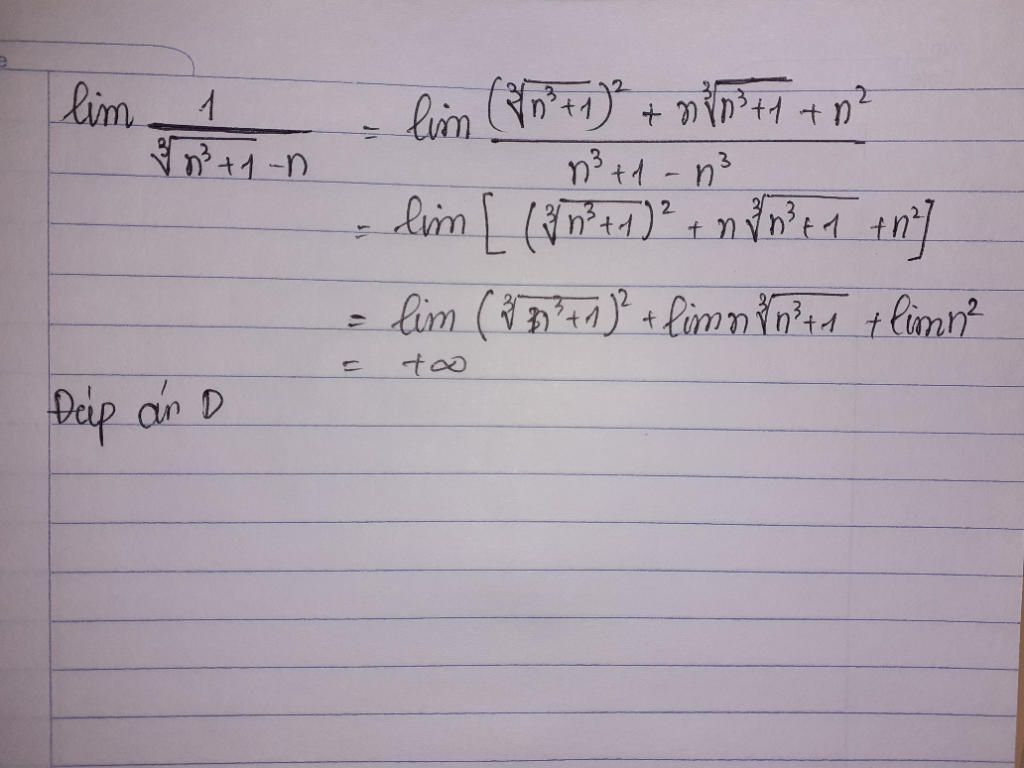 lim 1/(∛(n³+1) - n) = lim ((∛(n³+1))² + n∛(n³+1) + n²)/(n³+1 - n³)
= lim [(∛(n³+1))² + n∛(n³+1) + n²]
= lim (∛(n³+1))² + lim n∛(n³+1) + lim n²
= +∞
Đáp án D